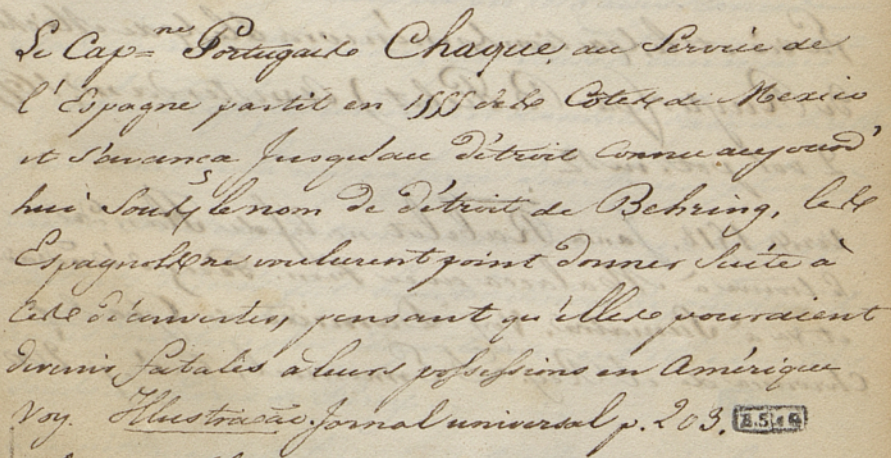 Le Cap=ne Portugais Chaque, au Service de
l'Espagne partit en 1555 des Côtes de Mexico
et s'avanca jusqu'au détroit connu aujourd'
hui sous le nom de détroit de Behring, les
Espagnols ne voulurent point donner suite à
ces découvertes, pensant qu'elles pouraient
devenir fatales à leurs possessions en Amérique
Voy. Illustracão. Jornal universal p. 203.